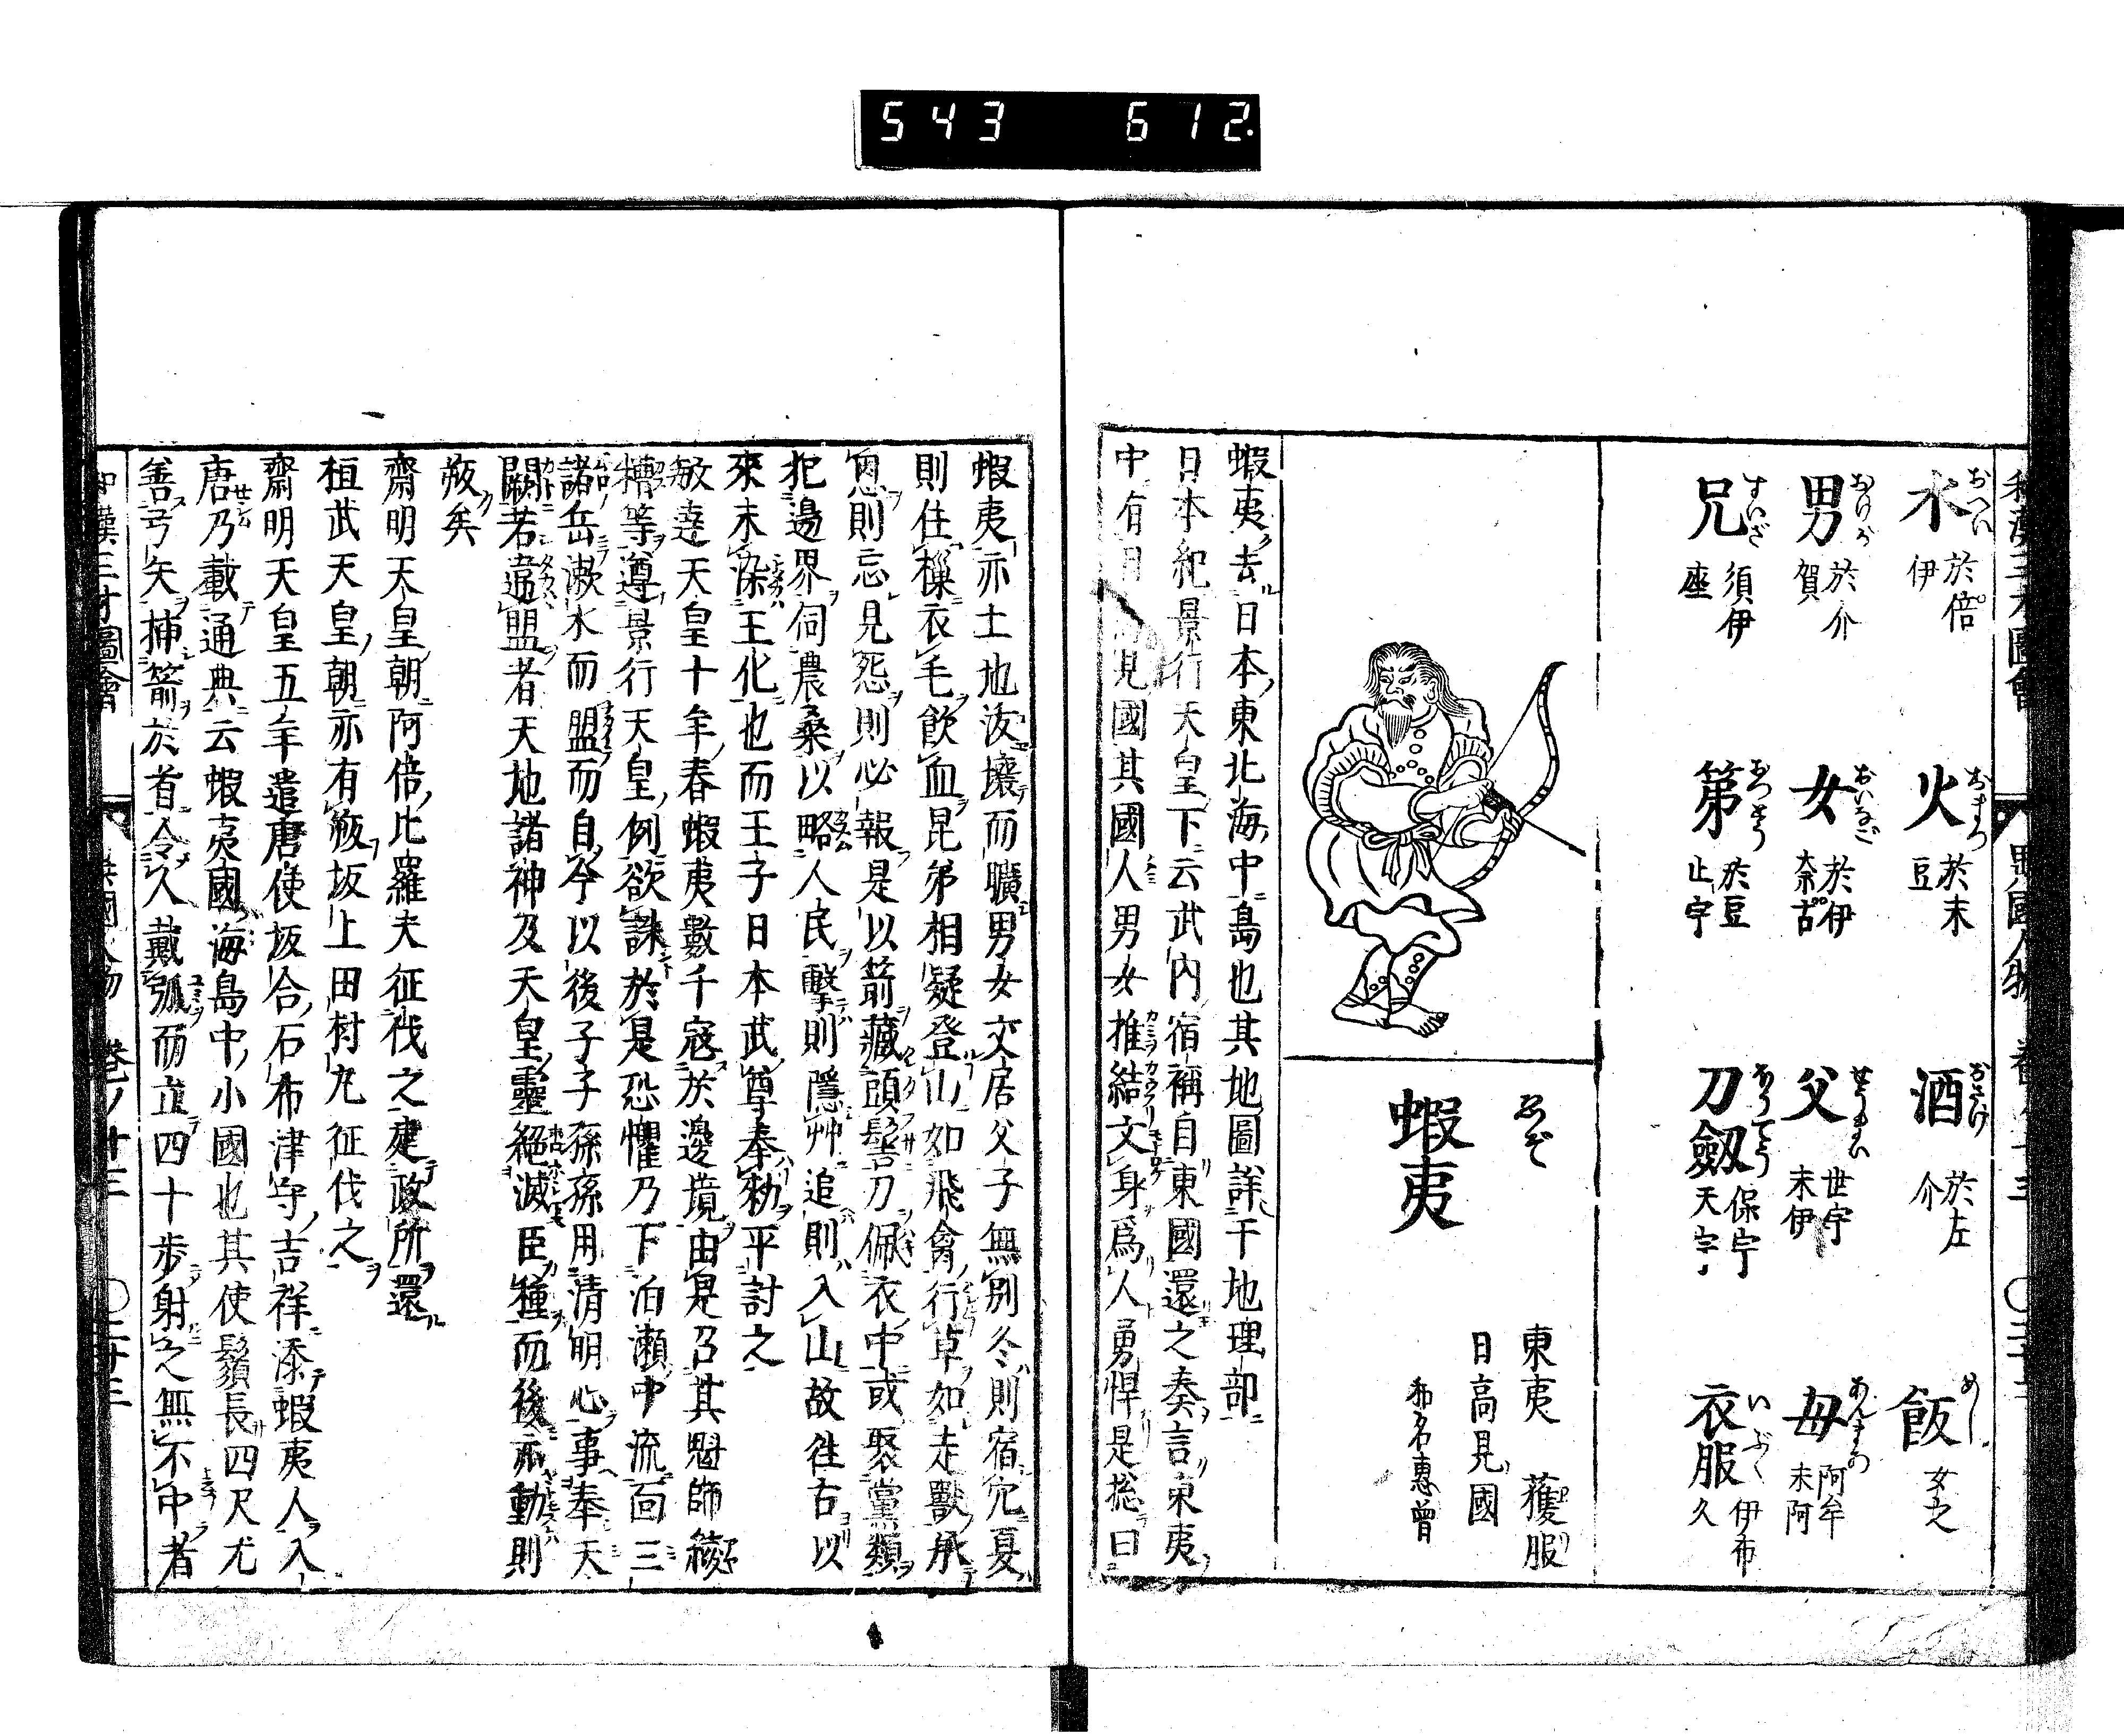 543 612.
和漢三才圖會 異國人物
水 おへい 於倍伊
火 おまつ 於末豆
酒 おさけ 於左介
飯 めし 女之
男 おけが 於介賀
女 おいなご 於伊奈古
父 せうまい 世宇末伊
母 あんまあ 阿牟末阿
兄 すいざ 須伊座
第 おつとう 於豆止宇
刀劔 ほうてう 保宇天宇
衣服 いぶく 伊布久
蝦夷 えぞ
東夷 蕧服
日高見國
和名惠曾
蝦夷去日本東北海中島也其地圖詳于地理部
日本紀景行天皇下云武内宿祢自東國還之奏言東夷
中有日高見國其國人男女推結文身爲人勇悍是総曰
蝦夷亦土地沃壤而曠男女交居父子無別冬則宿穴夏
則住樔衣毛飲血昆弟相疑登山如飛禽行草如走獸承
恩則忘見怨則必報是以箭藏頭髻刀佩衣中或聚黨類
犯邊界伺農桑以略人民擊則隱艸追則入山故徃古以
來未染王化也而王子日本武尊奉勅平討之
敏達天皇十年春蝦夷數千寇於邊境由是召其魁師綾
糟等遵景行天皇例欲誅於是恐懼乃下泊瀬中流面三
諸岳漱水而盟而自今以後子子孫孫用清明心事奉天
闕若違盟者天地諸神及天皇靈絕滅臣種而後不動則
皈矣
齋明天皇朝阿倍比羅夫征伐之建政所還
桓武天皇朝亦有皈坂上田村丸征伐之
齋明天皇五年遣唐使坂合石布津守吉祥添蝦夷人入
唐乃載通典云蝦夷國海島中小國也其使鬚長四尺尤
善弓矢捕箭於首令人戴瓠而立四十步射之無不中者
和漢三才圖會 異國人物 卷ノ十三 〇二十三